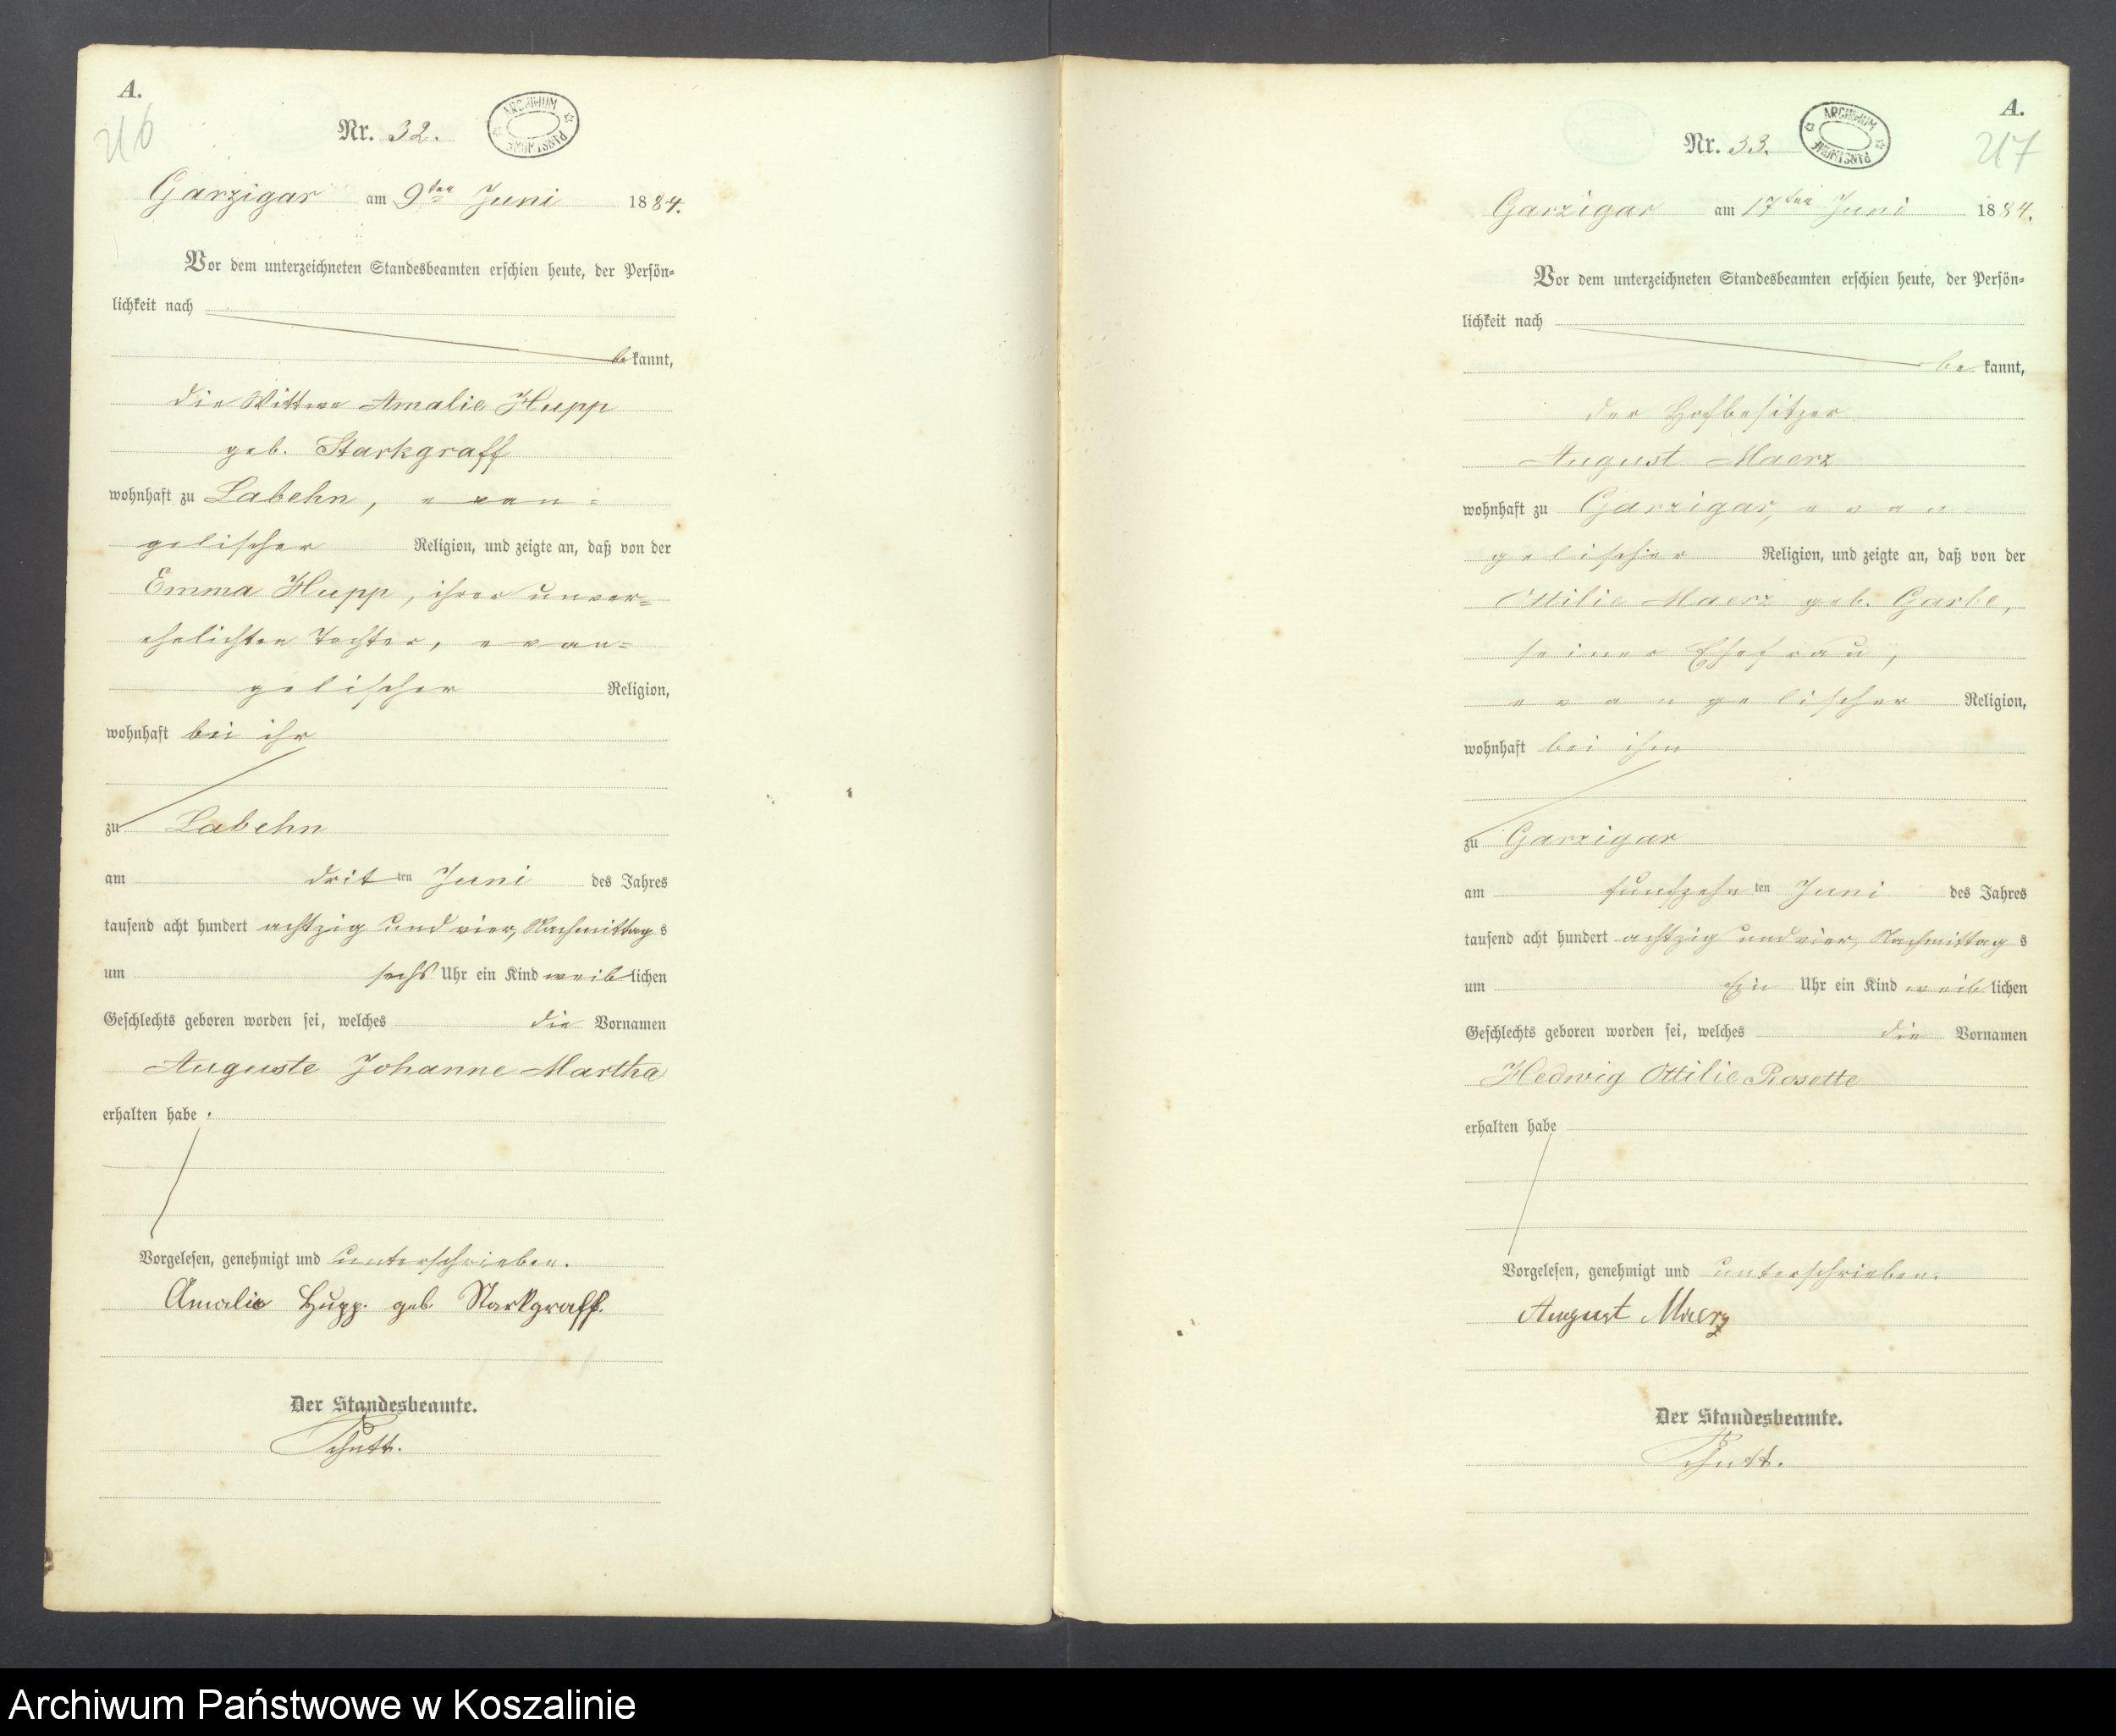 A.
216
Nr. 32.
ARCHIWUM PAŃSTWOWE
Garzigar am 9ten Juni 1884.
Vor dem unterzeichneten Standesbeamten erschien heute, der Persön=
lichkeit nach
be kannt,
die Wittwe Amalie Hupp
geb. Starkgraff
wohnhaft zu Labehn, evan=
gelischer Religion, und zeigte an, daß von der
Emma Hupp, ihrer unver=
ehelichten Tochter, evan=
gelischer Religion,
wohnhaft bei ihr
zu Labehn
am dritten Juni des Jahres
tausend acht hundert achtzig und vier, Nachmittags
um sechs Uhr ein Kind weiblichen
Geschlechts geboren worden sei, welches die Vornamen
Auguste Johanne Martha
erhalten habe.
Vorgelesen, genehmigt und unterschrieben.
Amalie Hupp. geb. Starkgraff.
Der Standesbeamte.
Schutt.
A.
217
Nr. 33.
ARCHIWUM PAŃSTWOWE
Garzigar am 17ten Juni 1884.
Vor dem unterzeichneten Standesbeamten erschien heute, der Persön=
lichkeit nach
be kannt,
der Hofbesitzer
August Maerz
wohnhaft zu Garzigar, evan=
gelischer Religion, und zeigte an, daß von der
Ottilie Maerz geb. Garbe,
seiner Ehefrau,
evangelischer Religion,
wohnhaft bei ihm
zu Garzigar
am funfzehnten Juni des Jahres
tausend acht hundert achtzig und vier, Nachmittags
um Ein Uhr ein Kind weiblichen
Geschlechts geboren worden sei, welches die Vornamen
Hedwig Ottilie Rosette
erhalten habe
Vorgelesen, genehmigt und unterschrieben.
August Maerz
Der Standesbeamte.
Schutt.
Archiwum Państwowe w Koszalinie